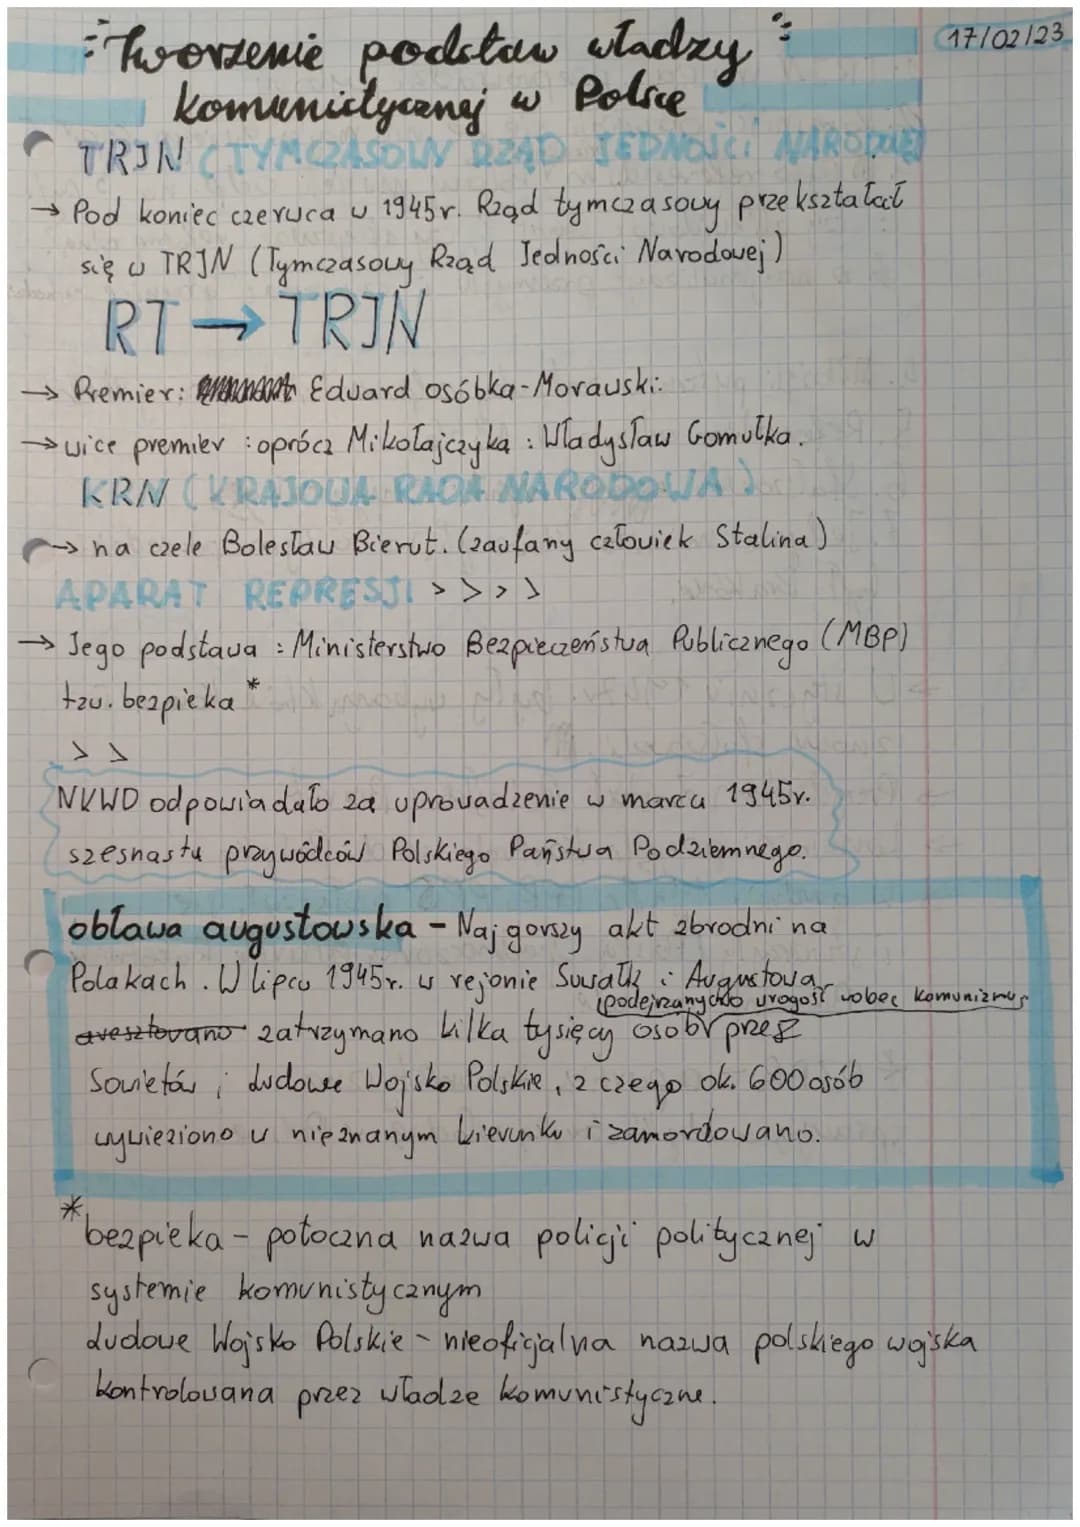 17/02/23
Tworzenie podstaw władzy
komunistycznej w Polsce
TRJN (TYMCZASOWY RZĄD JEDNOŚCI NARODOWEJ)
→ Pod koniec czerwca w 1945r. Rząd tymczasowy przekształcił
się w TRJN (Tymczasowy Rząd Jedności Narodowej)
RT → TRJN
→ Premier: Edward osóbka-Morawski.
→ wice premier : oprócz Mikołajczyka : Władysław Gomułka.
KRN (KRAJOWA RADA NARODOWA)
→ na czele Bolesław Bierut. (zaufany człowiek Stalina)
APARAT REPRESJI > > > >
→ Jego podstawa : Ministerstwo Bezpieczeństwa Publicznego (MBP)
tzw. bezpieka *
> >
NKWD odpowiadało za uprowadzenie w marcu 1945r.
szesnastu przywódców Polskiego Państwa Podziemnego.
obława augustowska - Najgorszy akt zbrodni na
Polakach. W lipcu 1945r. w rejonie Suwałk i Augustowa
(podejrzanych o wrogość wobec komunizmu)
aresztowano zatrzymano kilka tysięcy osób przez
Sowietów i Ludowe Wojsko Polskie, z czego ok. 600 osób
wywieziono w nieznanym kierunku i zamordowano.
* bezpieka - potoczna nazwa policji politycznej w
systemie komunistycznym
Ludowe Wojsko Polskie - nieoficjalna nazwa polskiego wojska
kontrolowana przez władze komunistyczne.